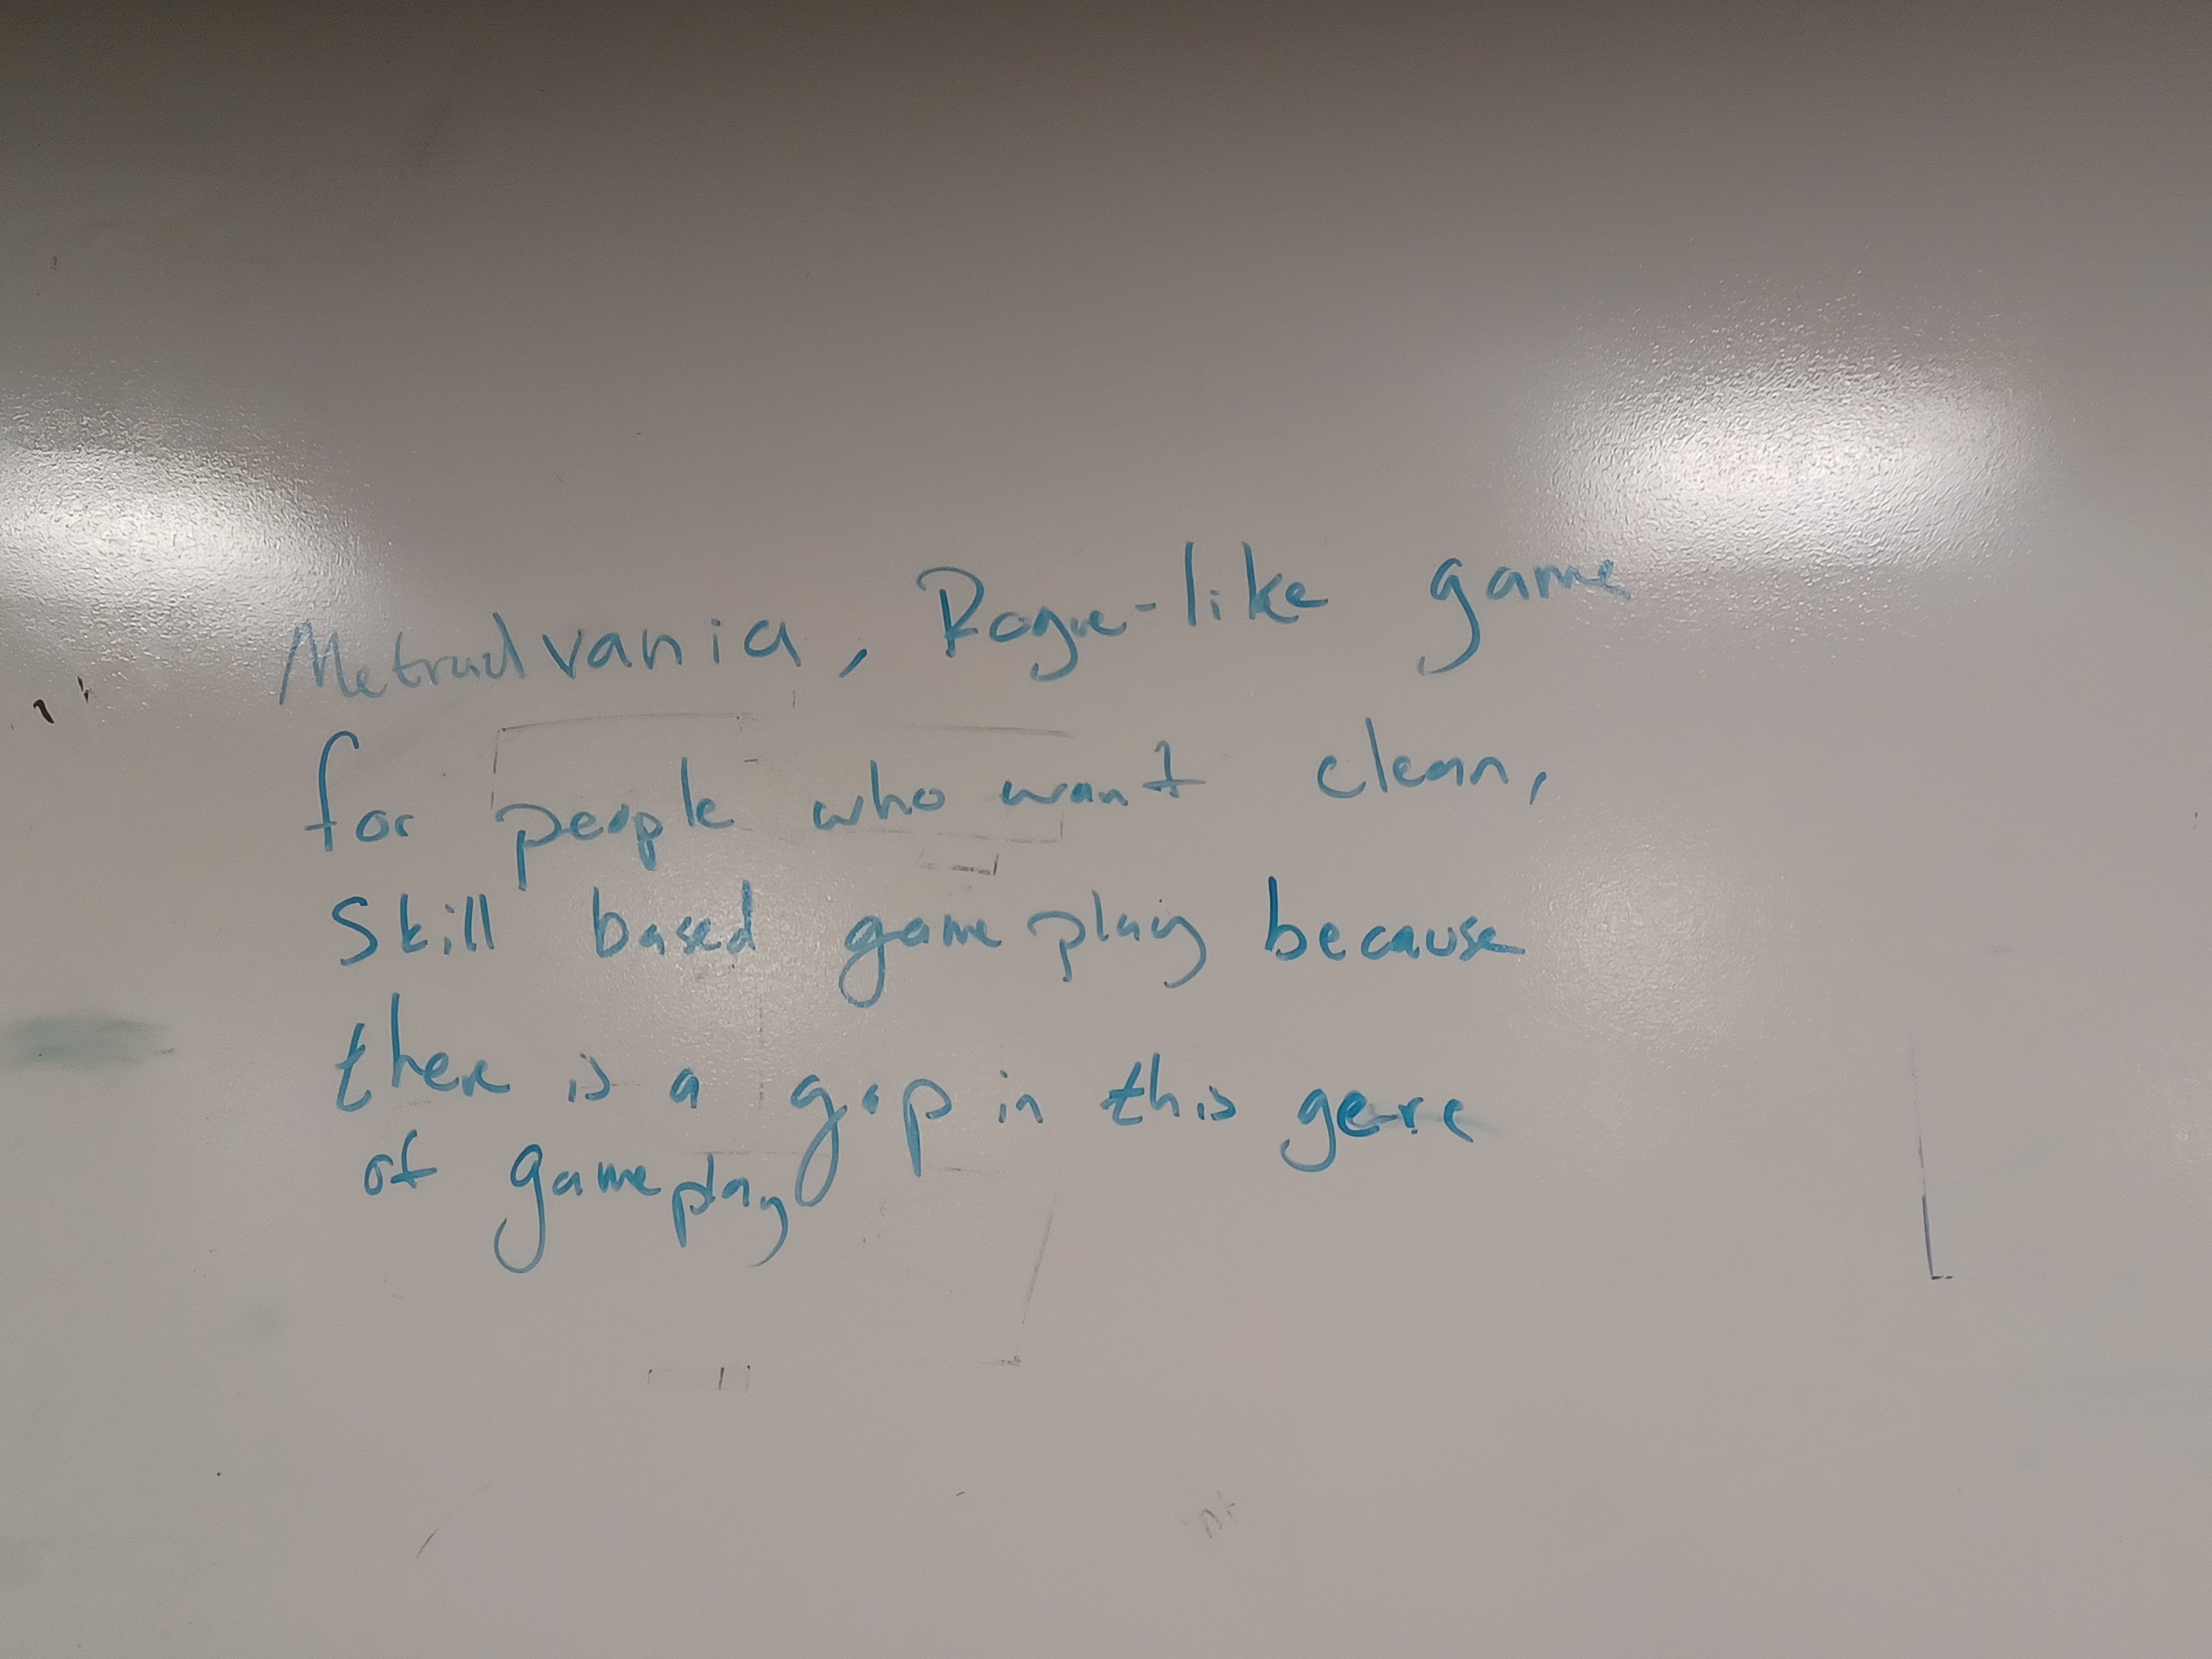 Metroidvania, Rogue-like game
for people who want clean,
Skill based gameplay because
there is a gap in this gere
of gameplay